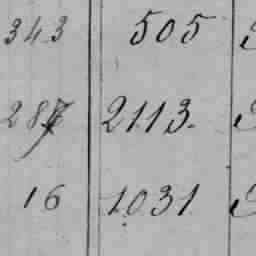 343 505
287 2113.
16 1031